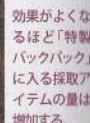 効果がよくな
るほど「特製
バックパック」
に入る採取ア
イテムの量は
増加する